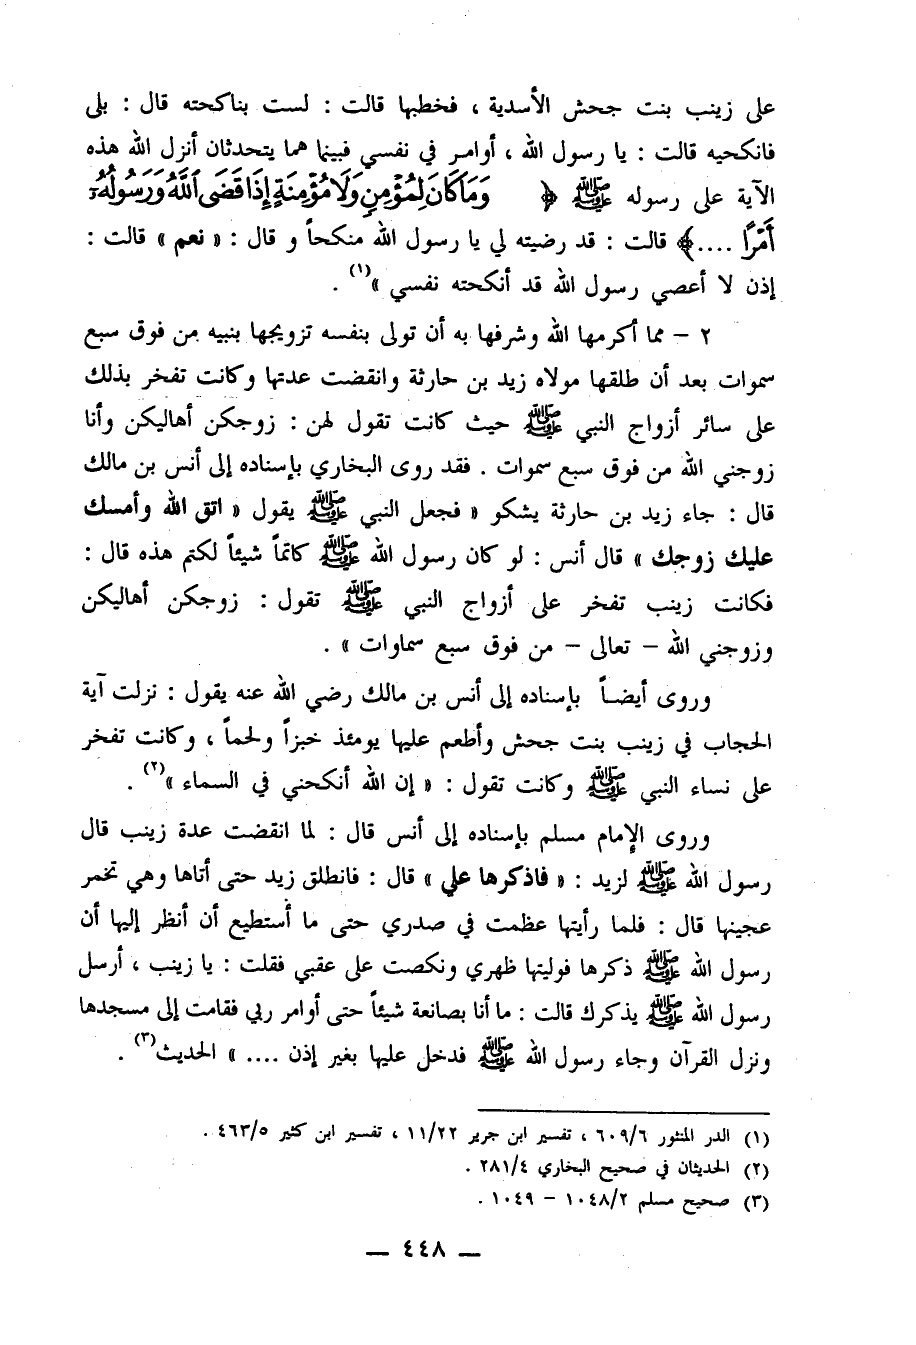 على زينب بنت جحش الأسدية ، فخطبها قالت : لست بناكحته قال : بلى
فانكحيه قالت : يا رسول الله ، أوامر في نفسي فبينما هما يتحدثان أنزل الله هذه
الآية على رسوله ﷺ ﴿ وَمَا كَانَ لِمُؤْمِنٍ وَلَا مُؤْمِنَةٍ إِذَا قَضَى ٱللَّهُ وَرَسُولُهُۥٓ
أَمْرًا ....﴾ قالت : قد رضيته لي يا رسول الله منكحاً و قال : « نعم » قالت :
إذن لا أعصي رسول الله قد أنكحته نفسي »(١) .
٢ – مما أكرمها الله وشرفها به أن تولى بنفسه تزويجها بنبيه من فوق سبع
سموات بعد أن طلقها مولاه زيد بن حارثة وانقضت عدتها وكانت تفخر بذلك
على سائر أزواج النبي ﷺ حيث كانت تقول لهن : زوجكن أهاليكن وأنا
زوجني الله من فوق سبع سموات . فقد روى البخاري بإسناده إلى أنس بن مالك
قال : جاء زيد بن حارثة يشكو « فجعل النبي ﷺ يقول « اتق الله وأمسك
عليك زوجك » قال أنس : لو كان رسول الله ﷺ كاتماً شيئاً لكتم هذه قال :
فكانت زينب تفخر على أزواج النبي ﷺ تقول : زوجكن أهاليكن
وزوجني الله – تعالى – من فوق سبع سماوات » .
وروى أيضاً بإسناده إلى أنس بن مالك رضي الله عنه يقول : نزلت آية
الحجاب في زينب بنت جحش وأطعم عليها يومئذ خبزاً ولحماً ، وكانت تفخر
على نساء النبي ﷺ وكانت تقول : « إن الله أنكحني في السماء »(٢) .
وروى الإمام مسلم بإسناده إلى أنس قال : لما انقضت عدة زينب قال
رسول الله ﷺ لزيد : « فاذكرها علي » قال : فانطلق زيد حتى أتاها وهي تخمر
عجينها قال : فلما رأيتها عظمت في صدري حتى ما أستطيع أن أنظر إليها أن
رسول الله ﷺ ذكرها فوليتها ظهري ونكصت على عقبي فقلت : يا زينب ، أرسل
رسول الله ﷺ يذكرك قالت : ما أنا بصانعة شيئاً حتى أوامر ربي فقامت إلى مسجدها
ونزل القرآن وجاء رسول الله ﷺ فدخل عليها بغير إذن .... » الحديث(٣) .
(١) الدر المنثور ٦٠٩/٦ ، تفسير ابن جرير ١١/٢٢ ، تفسير ابن كثير ٤٦٣/٥ .
(٢) الحديثان في صحيح البخاري ٢٨١/٤ .
(٣) صحيح مسلم ١٠٤٨/٢ – ١٠٤٩ .
— ٤٤٨ —